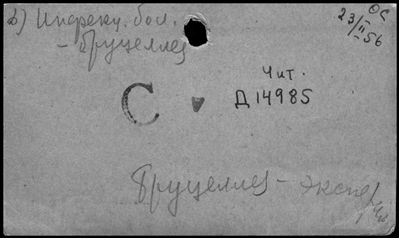 2) Инфекц. бол.
- бруцеллез
ОС
23/II 56
Чит.
Д 14985
С
Бруцеллез - экспер